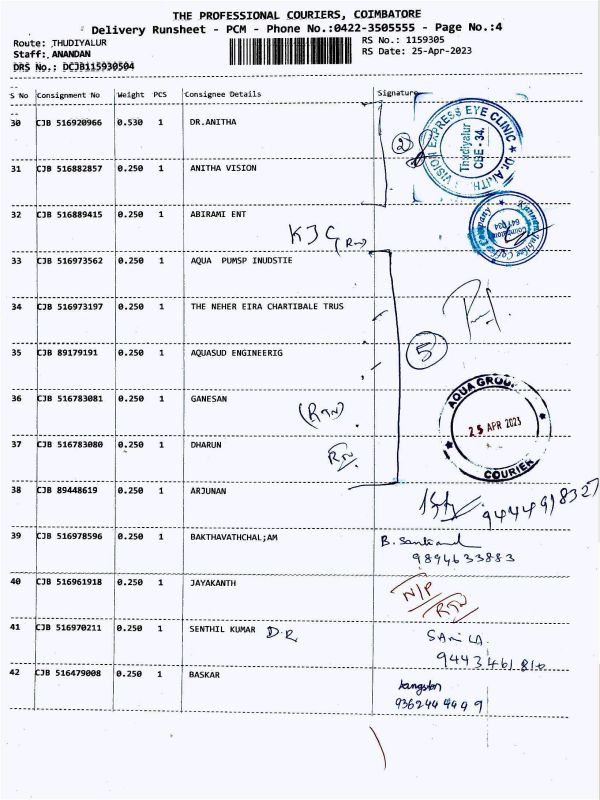 THE PROFESSIONAL COURIERS, COIMBATORE
Delivery Runsheet - PCM - Phone No.:0422-3505555 - Page No.:4
Route: THUDIYALUR RS No.: 1159305
Staff: ANANDAN RS Date: 25-Apr-2023
DRS No.: DCJB115930504
S No Consignment No Weight PCS Consignee Details Signature
30 CJB 516920966 0.530 1 DR.ANITHA
2
VISION EXPRESS EYE CLINIC
Thudiyalur
CBE - 34.
31 CJB 516882857 0.250 1 ANITHA VISION
32 CJB 516889415 0.250 1 ABIRAMI ENT
Coimbatore
33 CJB 516973562 0.250 1 AQUA PUMSP INUDSTIE
34 CJB 516973197 0.250 1 THE NEHER EIRA CHARTIBALE TRUS
35 CJB 89179191 0.250 1 AQUASUD ENGINEERIG
5
36 CJB 516783081 0.250 1 GANESAN
(RTN)
AQUA GROUP
25 APR 2023
COURIER
37 CJB 516783080 0.250 1 DHARUN
RTN
38 CJB 89448619 0.250 1 ARJUNAN
9444918327
39 CJB 516978596 0.250 1 BAKTHAVATHCHAL;AM
9894633883
40 CJB 516961918 0.250 1 JAYAKANTH
N/P
RTN
41 CJB 516970211 0.250 1 SENTHIL KUMAR D.R
9443461810
42 CJB 516479008 0.250 1 BASKAR
9362444449